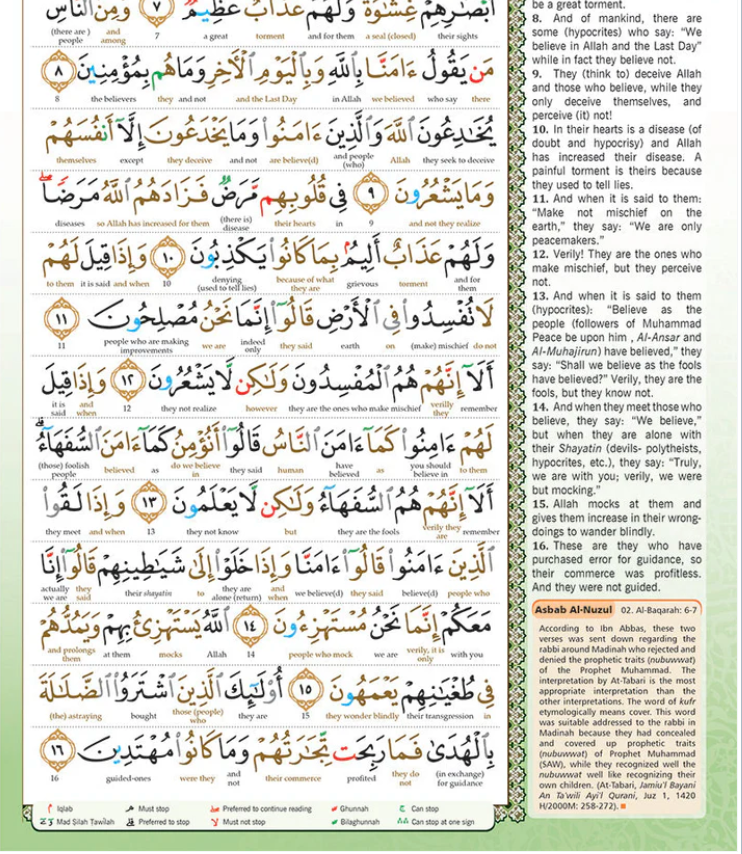 أَبْصَٰرِهِمْ غِشَٰوَةٌ وَلَهُمْ عَذَابٌ عَظِيمٌ ٧ وَمِنَ النَّاسِ
(there are) people and among 7 a great torment and for them a seal (closed) their sights
مَن يَقُولُ ءَامَنَّا بِاللَّهِ وَبِالْيَوْمِ الْأَخِرِ وَمَا هُم بِمُؤْمِنِينَ ٨
8 the believers they and not and the Last Day in Allah we believed who say there
يُخَٰدِعُونَ اللَّهَ وَالَّذِينَ ءَامَنُوا۟ وَمَا يَخْدَعُونَ إِلَّآ أَنفُسَهُمْ
themselves except they deceive and not are believe(d) and people (who) Allah they seek to deceive
وَمَا يَشْعُرُونَ ٩ فِى قُلُوبِهِم مَّرَضٌ فَزَادَهُمُ اللَّهُ مَرَضًا ۖ
diseases so Allah has increased for them (there is) disease their hearts in 9 and not they realize
وَلَهُمْ عَذَابٌ أَلِيمٌۢ بِمَا كَانُوا۟ يَكْذِبُونَ ١٠ وَإِذَا قِيلَ لَهُمْ
to them it is said and when 10 denying (used to tell lies) because of what they are grievous torment and for them
لَا تُفْسِدُوا۟ فِى الْأَرْضِ قَالُوٓا۟ إِنَّمَا نَحْنُ مُصْلِحُونَ ١١
11 people who are making improvements we are indeed only they said earth on (make) mischief do not
أَلَآ إِنَّهُمْ هُمُ الْمُفْسِدُونَ وَلَٰكِن لَّا يَشْعُرُونَ ١٢ وَإِذَا قِيلَ
it is said and when 12 they not realize however they are the ones who make mischief verily they remember
لَهُمْ ءَامِنُوا۟ كَمَآ ءَامَنَ النَّاسُ قَالُوٓا۟ أَنُؤْمِنُ كَمَآ ءَامَنَ السُّفَهَآءُ ۗ
(those) foolish people believed as do we believe in they said human have believed as you should believe in to them
أَلَآ إِنَّهُمْ هُمُ السُّفَهَآءُ وَلَٰكِن لَّا يَعْلَمُونَ ١٣ وَإِذَا لَقُوا۟
they meet and when 13 they not know but they are the fools verily they are remember
الَّذِينَ ءَامَنُوا۟ قَالُوٓا۟ ءَامَنَّا وَإِذَا خَلَوْا۟ إِلَىٰ شَيَٰطِينِهِمْ قَالُوٓا۟ إِنَّا
actually we are they said their shayatin to they are alone (return) and when we believe(d) they said believe(d) people who
مَعَكُمْ إِنَّمَا نَحْنُ مُسْتَهْزِءُونَ ١٤ اللَّهُ يَسْتَهْزِئُ بِهِمْ وَيَمُدُّهُمْ
and prolongs them at them mocks Allah 14 people who mock we are verily, it is only with you
فِى طُغْيَٰنِهِمْ يَعْمَهُونَ ١٥ أُو۟لَٰٓئِكَ الَّذِينَ اشْتَرَوُا۟ الضَّلَٰلَةَ
(the) astraying bought those (people) who they are 15 they wonder blindly their transgression in
بِالْهُدَىٰ فَمَا رَبِحَت تِّجَٰرَتُهُمْ وَمَا كَانُوا۟ مُهْتَدِينَ ١٦
16 guided-ones were they and not their commerce profited they do not (in exchange) for guidance
Iqlab Must stop Preferred to continue reading Ghunnah Can stop
Mad Silah Tawilah Preferred to stop Must not stop Bilaghunnah Can stop at one sign
be a great torment.
8. And of mankind, there are
some (hypocrites) who say: “We
believe in Allah and the Last Day”
while in fact they believe not.
9. They (think to) deceive Allah
and those who believe, while they
only deceive themselves, and
perceive (it) not!
10. In their hearts is a disease (of
doubt and hypocrisy) and Allah
has increased their disease. A
painful torment is theirs because
they used to tell lies.
11. And when it is said to them:
“Make not mischief on the
earth,” they say: “We are only
peacemakers.”
12. Verily! They are the ones who
make mischief, but they perceive
not.
13. And when it is said to them
(hypocrites): “Believe as the
people (followers of Muhammad
Peace be upon him , Al-Ansar and
Al-Muhajirun) have believed,” they
say: “Shall we believe as the fools
have believed?” Verily, they are the
fools, but they know not.
14. And when they meet those who
believe, they say: “We believe,”
but when they are alone with
their Shayatin (devils- polytheists,
hypocrites, etc.), they say: “Truly,
we are with you; verily, we were
but mocking.”
15. Allah mocks at them and
gives them increase in their wrong-
doings to wander blindly.
16. These are they who have
purchased error for guidance, so
their commerce was profitless.
And they were not guided.
Asbab Al-Nuzul 02. Al-Baqarah: 6-7
According to Ibn Abbas, these two
verses was sent down regarding the
rabbi around Madinah who rejected and
denied the prophetic traits (nubuwwat)
of the Prophet Muhammad. The
interpretation by At-Tabari is the most
appropriate interpretation than the
other interpretations. The word of kufr
etymologically means cover. This word
was suitable addressed to the rabbi in
Madinah because they had concealed
and covered up prophetic traits
(nubuwwat) of Prophet Muhammad
(SAW), while they recognized well the
nubuwwat well like recognizing their
own children. (At-Tabari, Jamiu'l Bayani
An Ta'wili Ayi'l Qurani, Juz 1, 1420
H/2000M: 258-272).